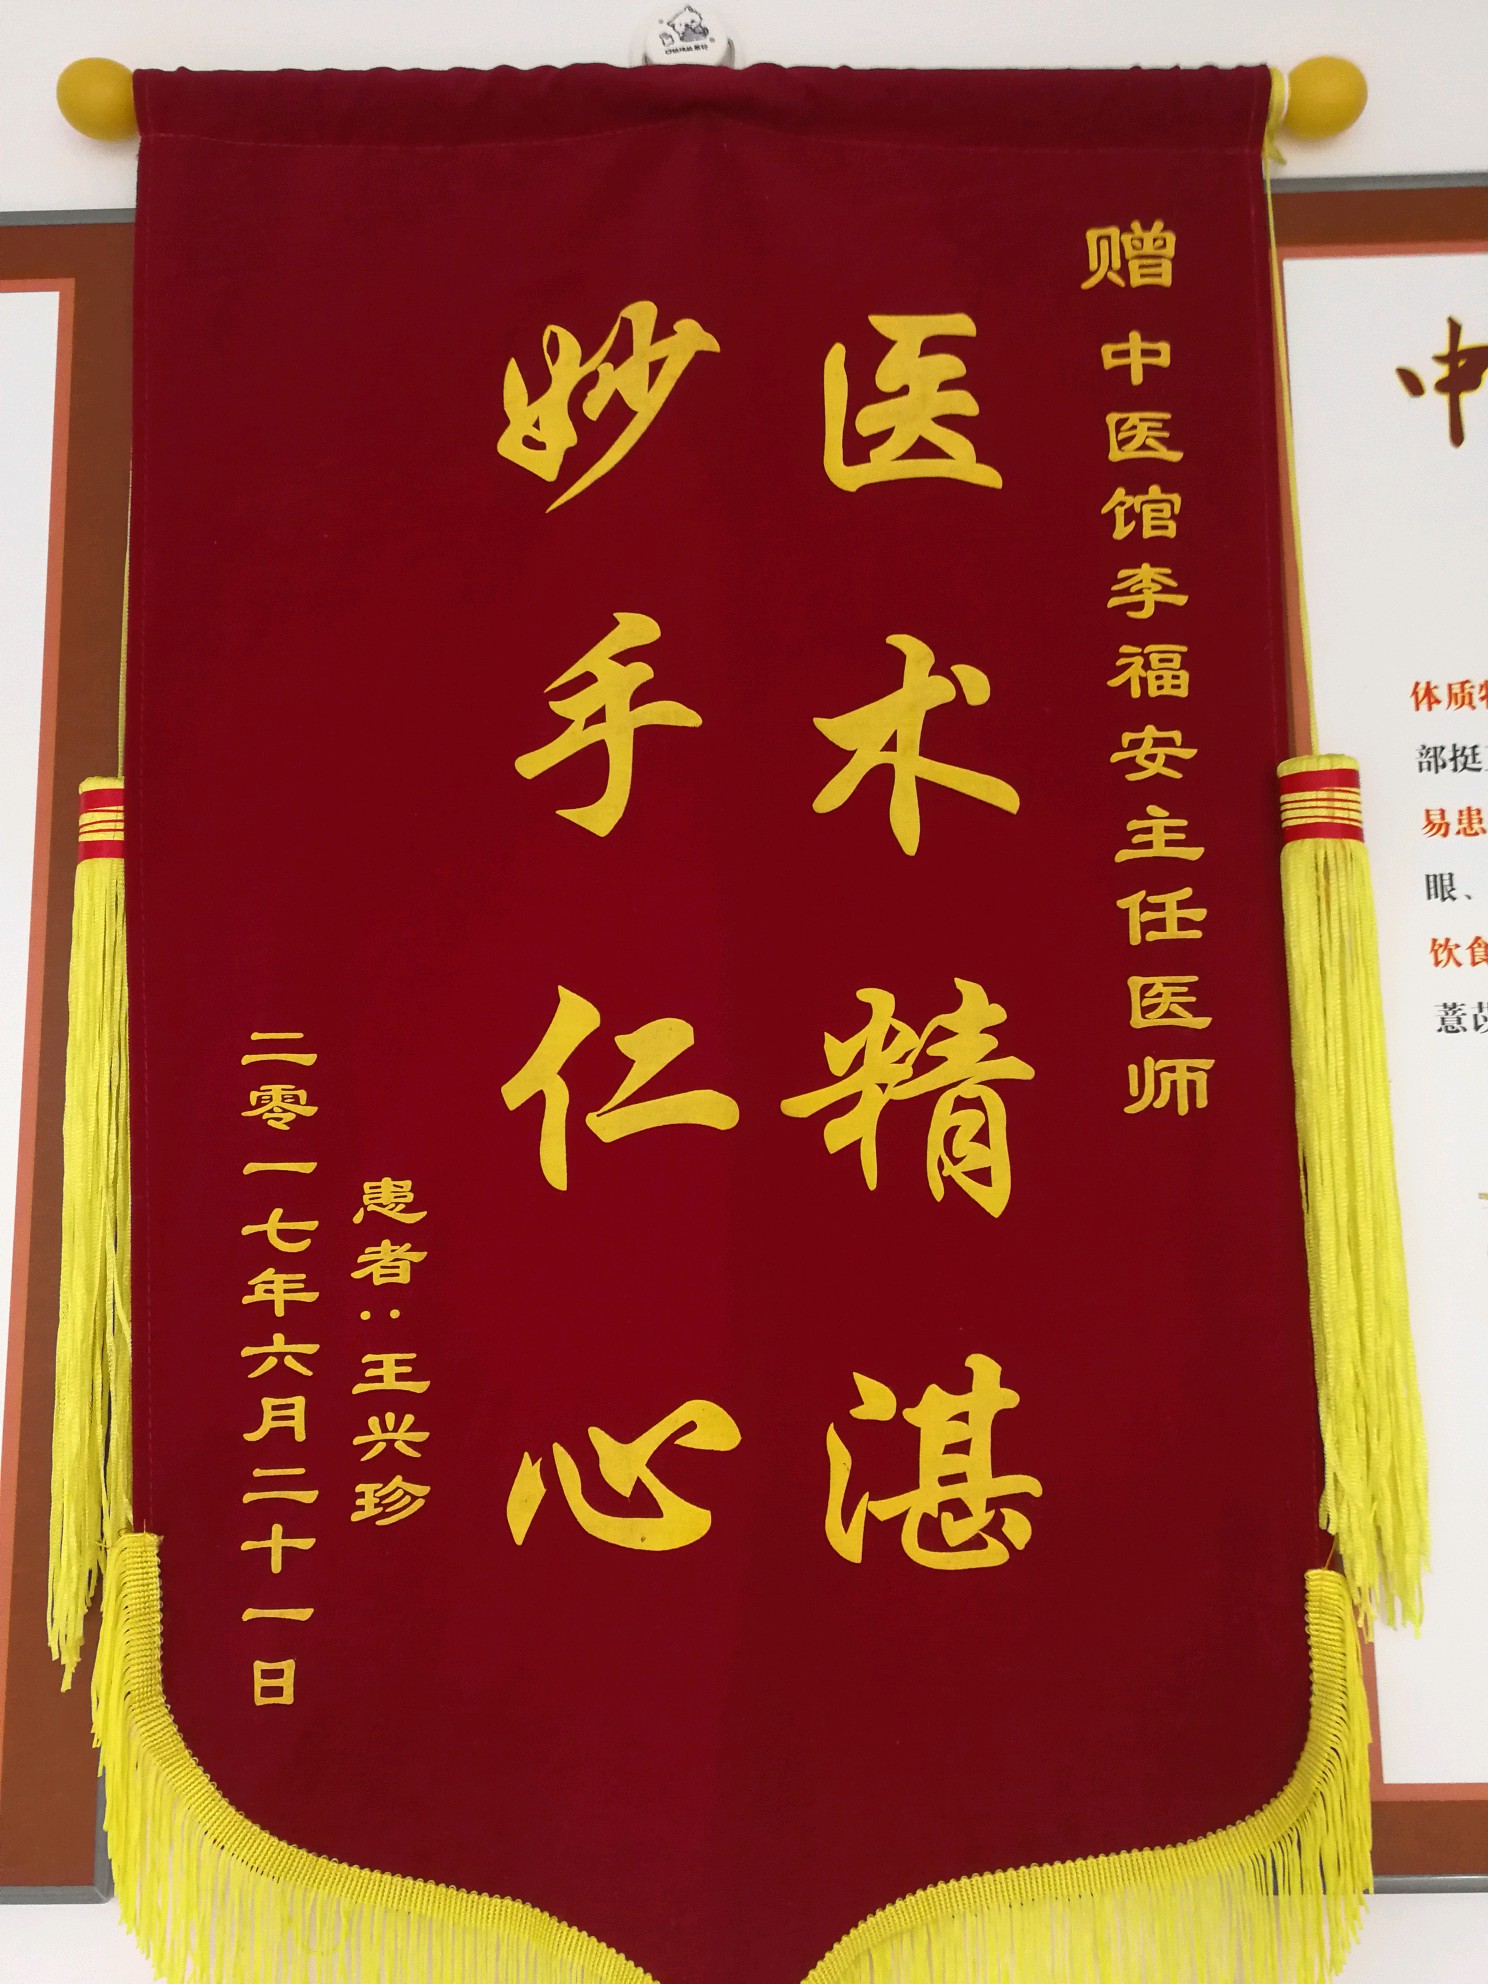 赠 中医馆李福安主任医师
医术精湛
妙手仁心
患者:王兴珍
二零一七年六月二十一日
中
体质
部挺
易患
眼、
饮食
薏苡